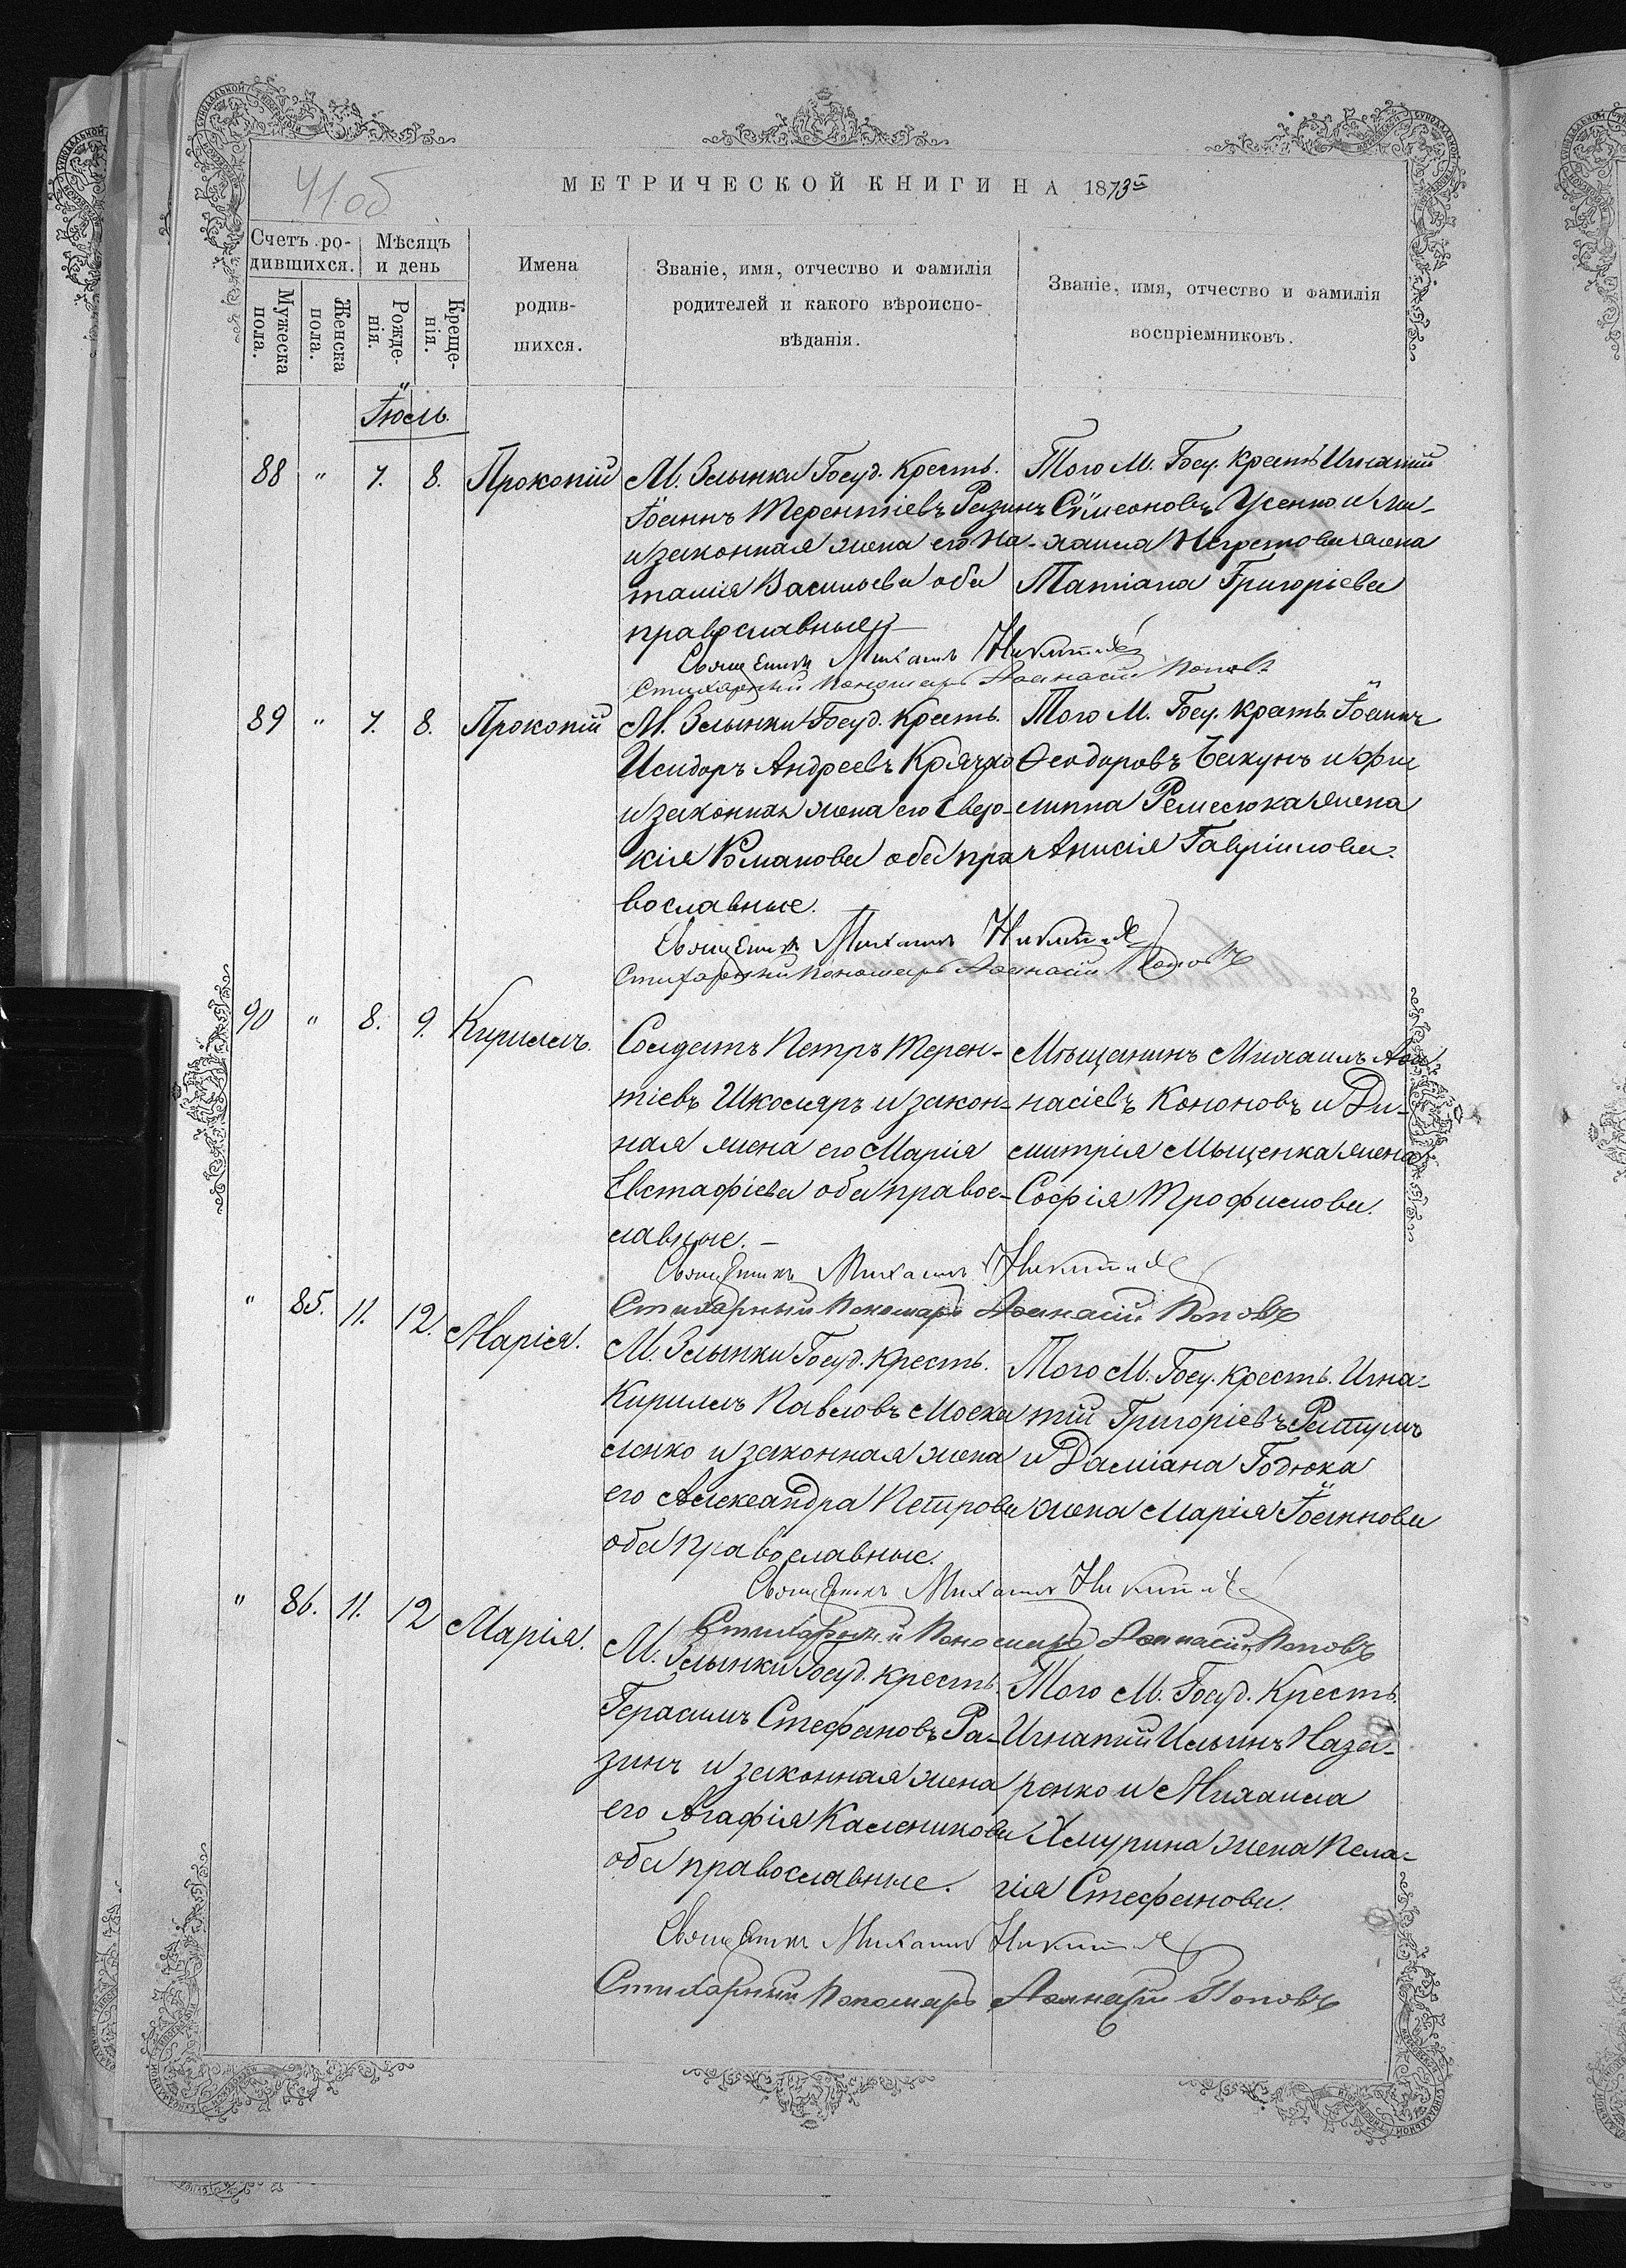 41об
МЕТРИЧЕСКОЙ КНИГИ НА 1873й
Счетъ ро-
дившихся.
Мѣсяцъ
и день
Имена
родив-
шихся.
Званіе, имя, отчество и фамилія
родителей и какого вѣроиспо-
вѣданія.
Званіе, имя, отчество и фамилія
воспріемниковъ.
Мужеска
пола.
Женска
пола.
Рожде-
нія.
Креще-
нія.
Іюль.
88 " 7. 8. Прокопій
М. Злынки Госуд. Кресть.
Іоаннъ Терентіевъ Разинъ
и законная жена его На-
талія Васильева оба
православные
Того М. Госу. Кресть Игнатій
Сѵмеоновъ Усенко и Ми-
хаила Негретова жена
Татіана Григоріева
Священникъ Михаилъ
Стихарный Пономарь Аѳанасій Поповъ
89 " 7. 8. Прокопій
М. Злынки Госуд. Кресть.
Исидоръ Андреевъ Крячко
и законная жена его Евдо-
кія Романова оба пра
вославные.
Того М. Госу. Кресть. Іоаннъ
Ѳеодоровъ Бакунъ и Фи
липпа Ремесюка жена
Анисія Гавріилова.
Священникъ Михаилъ
Стихарный Пономарь Аѳанасій Поповъ
90 " 8. 9. Кириллъ.
Солдатъ Петръ Терен-
тіевъ Школяръ и закон-
ная жена его Марія
Евстафіева оба правос-
лавные. –
Мѣщанинъ Михаилъ Аѳа
насіевъ Кононовъ и Ди-
митрія Мыценка жена
Софія Трофимова.
Священникъ Михаилъ
Стихарный Пономарь Аѳанасій Поповъ
" 85. 11. 12. Марія.
М. Злынки Госуд. Кресть.
Кириллъ Павловъ Моска
ленко и законная жена
его Александра Петрова
оба православные.
Того М. Госу. Кресть. Игна-
тій Григоріевъ Ратушъ
и Даміана Годюка
жена Марія Іоаннова
Священникъ Михаилъ
Стихарный Пономарь Аѳанасій Поповъ
" 86. 11. 12 Марія.
М. Злынки Госуд. Кресть.
Герасимъ Стефановъ Ра-
зинъ и законная жена
его Агафія Каленикова
оба православные.
Того М. Госуд. Кресть.
Игнатій Ильинъ Наза-
ренко и Михаила
Хмурина жена Пела-
гія Стефанова.
Священникъ Михаилъ
Стихарный Пономарь Аѳанасій Поповъ